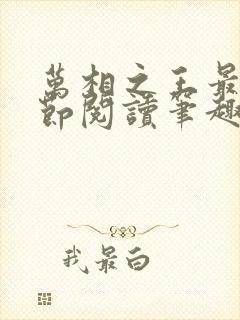 萬相之王最
節閱讀筆趣
我最白